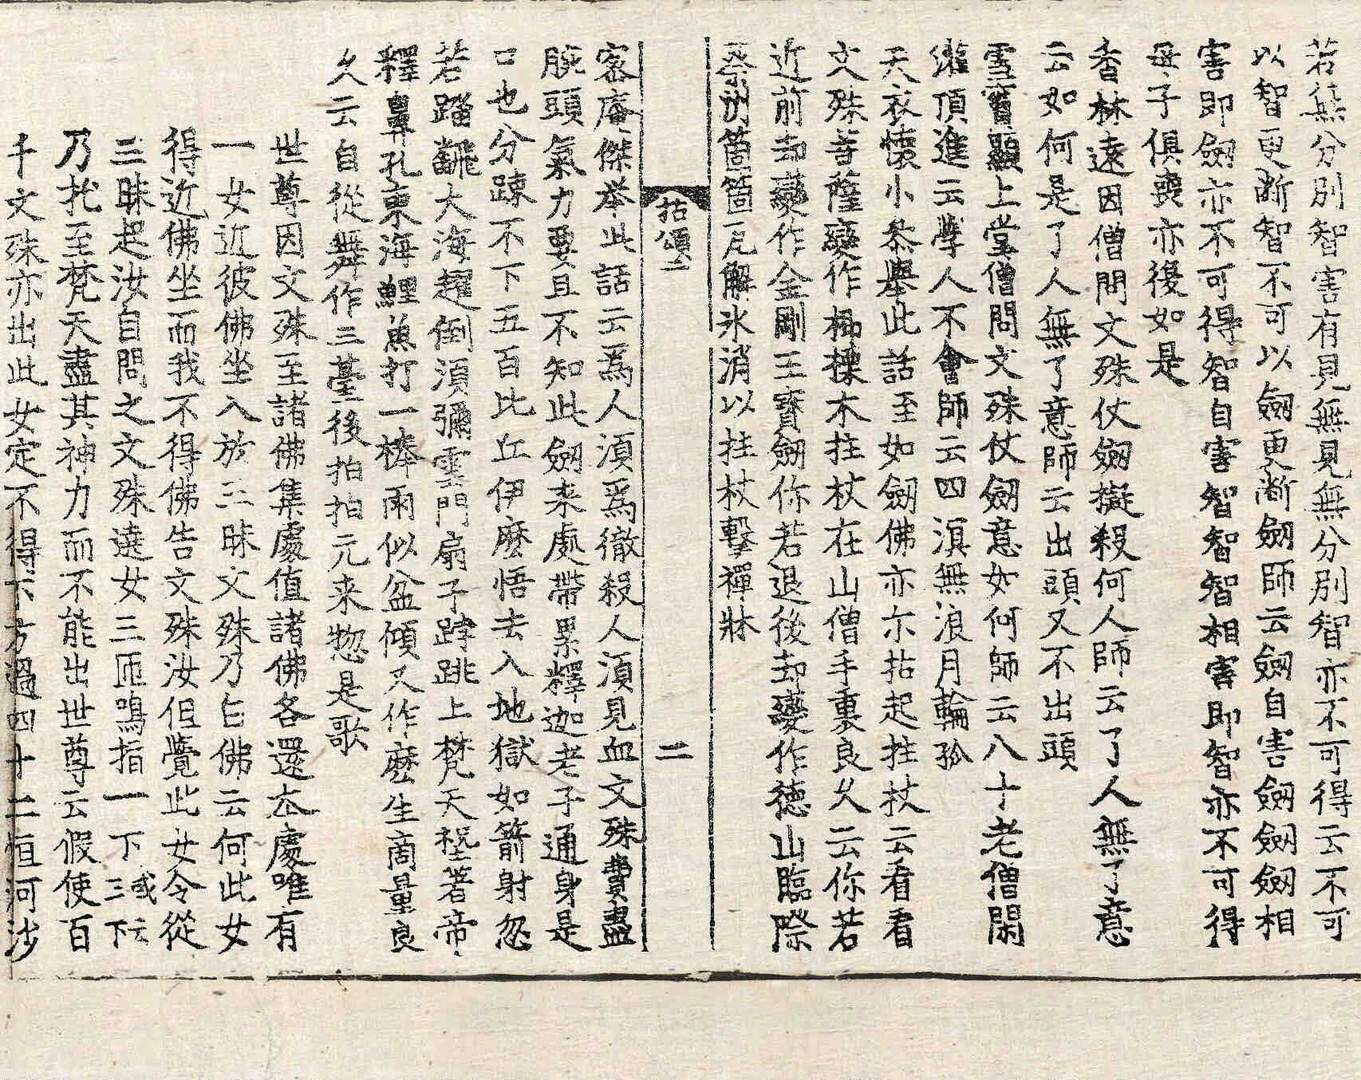 若無分別智害有見無見無分別智亦不可得云不可
以智更断智不可以劒更断劒師云劒自害劒劒相
害即劒亦不可得智自害智智智相害即智亦不可得
母子俱喪亦復如是
香林遠因僧問文殊仗劒擬殺何人師云了人無了意
云如何是了人無了意師云出頭又不出頭
雪竇顯上堂僧問文殊仗劒意如何師云八十老僧閑
灌頂進云學人不會師云四溟無浪月輪孤
天衣懷小叅舉此話至如劒佛亦尓拈起拄杖云看看
文殊菩薩變作楖𣗖木拄杖在山僧手裏良久云你若
近前却變作金剛王寳劒你若退後却變作德山臨際
箇箇瓦解氷消以拄杖擊禪牀
拈頌二
二
密庵傑举此話云爲人湏爲徹殺人湏見血文殊費盡
腕頭氣力要且不知此劒来處帶累釋迦老子通身是
口也分踈不下五百比丘伊麽悟去入地獄如箭射忽
若踏飜大海趯倒湏彌雲門扇子𨁝跳上梵天築著帝
釋鼻孔東海鯉魚打一棒雨似盆傾又作麽生商量良
久云自從舞作三䑓後拍拍元来惣是歌
世尊因文殊至諸佛集處值諸佛各還本處唯有
一女近彼佛坐入於三昧文殊乃白佛云何此女
得近佛坐而我不得佛告文殊汝但覺此女令從
三昧起汝自問之文殊遶女三匝鳴指一下或云三下
乃托至梵天盡其神力而不能出世尊云假使百
千文殊亦出此女定不得下方過四十二恒河沙